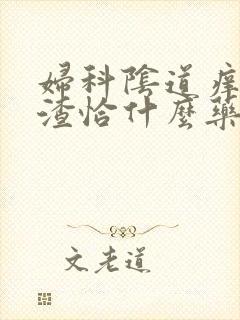 婦科陰道痒
渣恰什麼藥
文老道